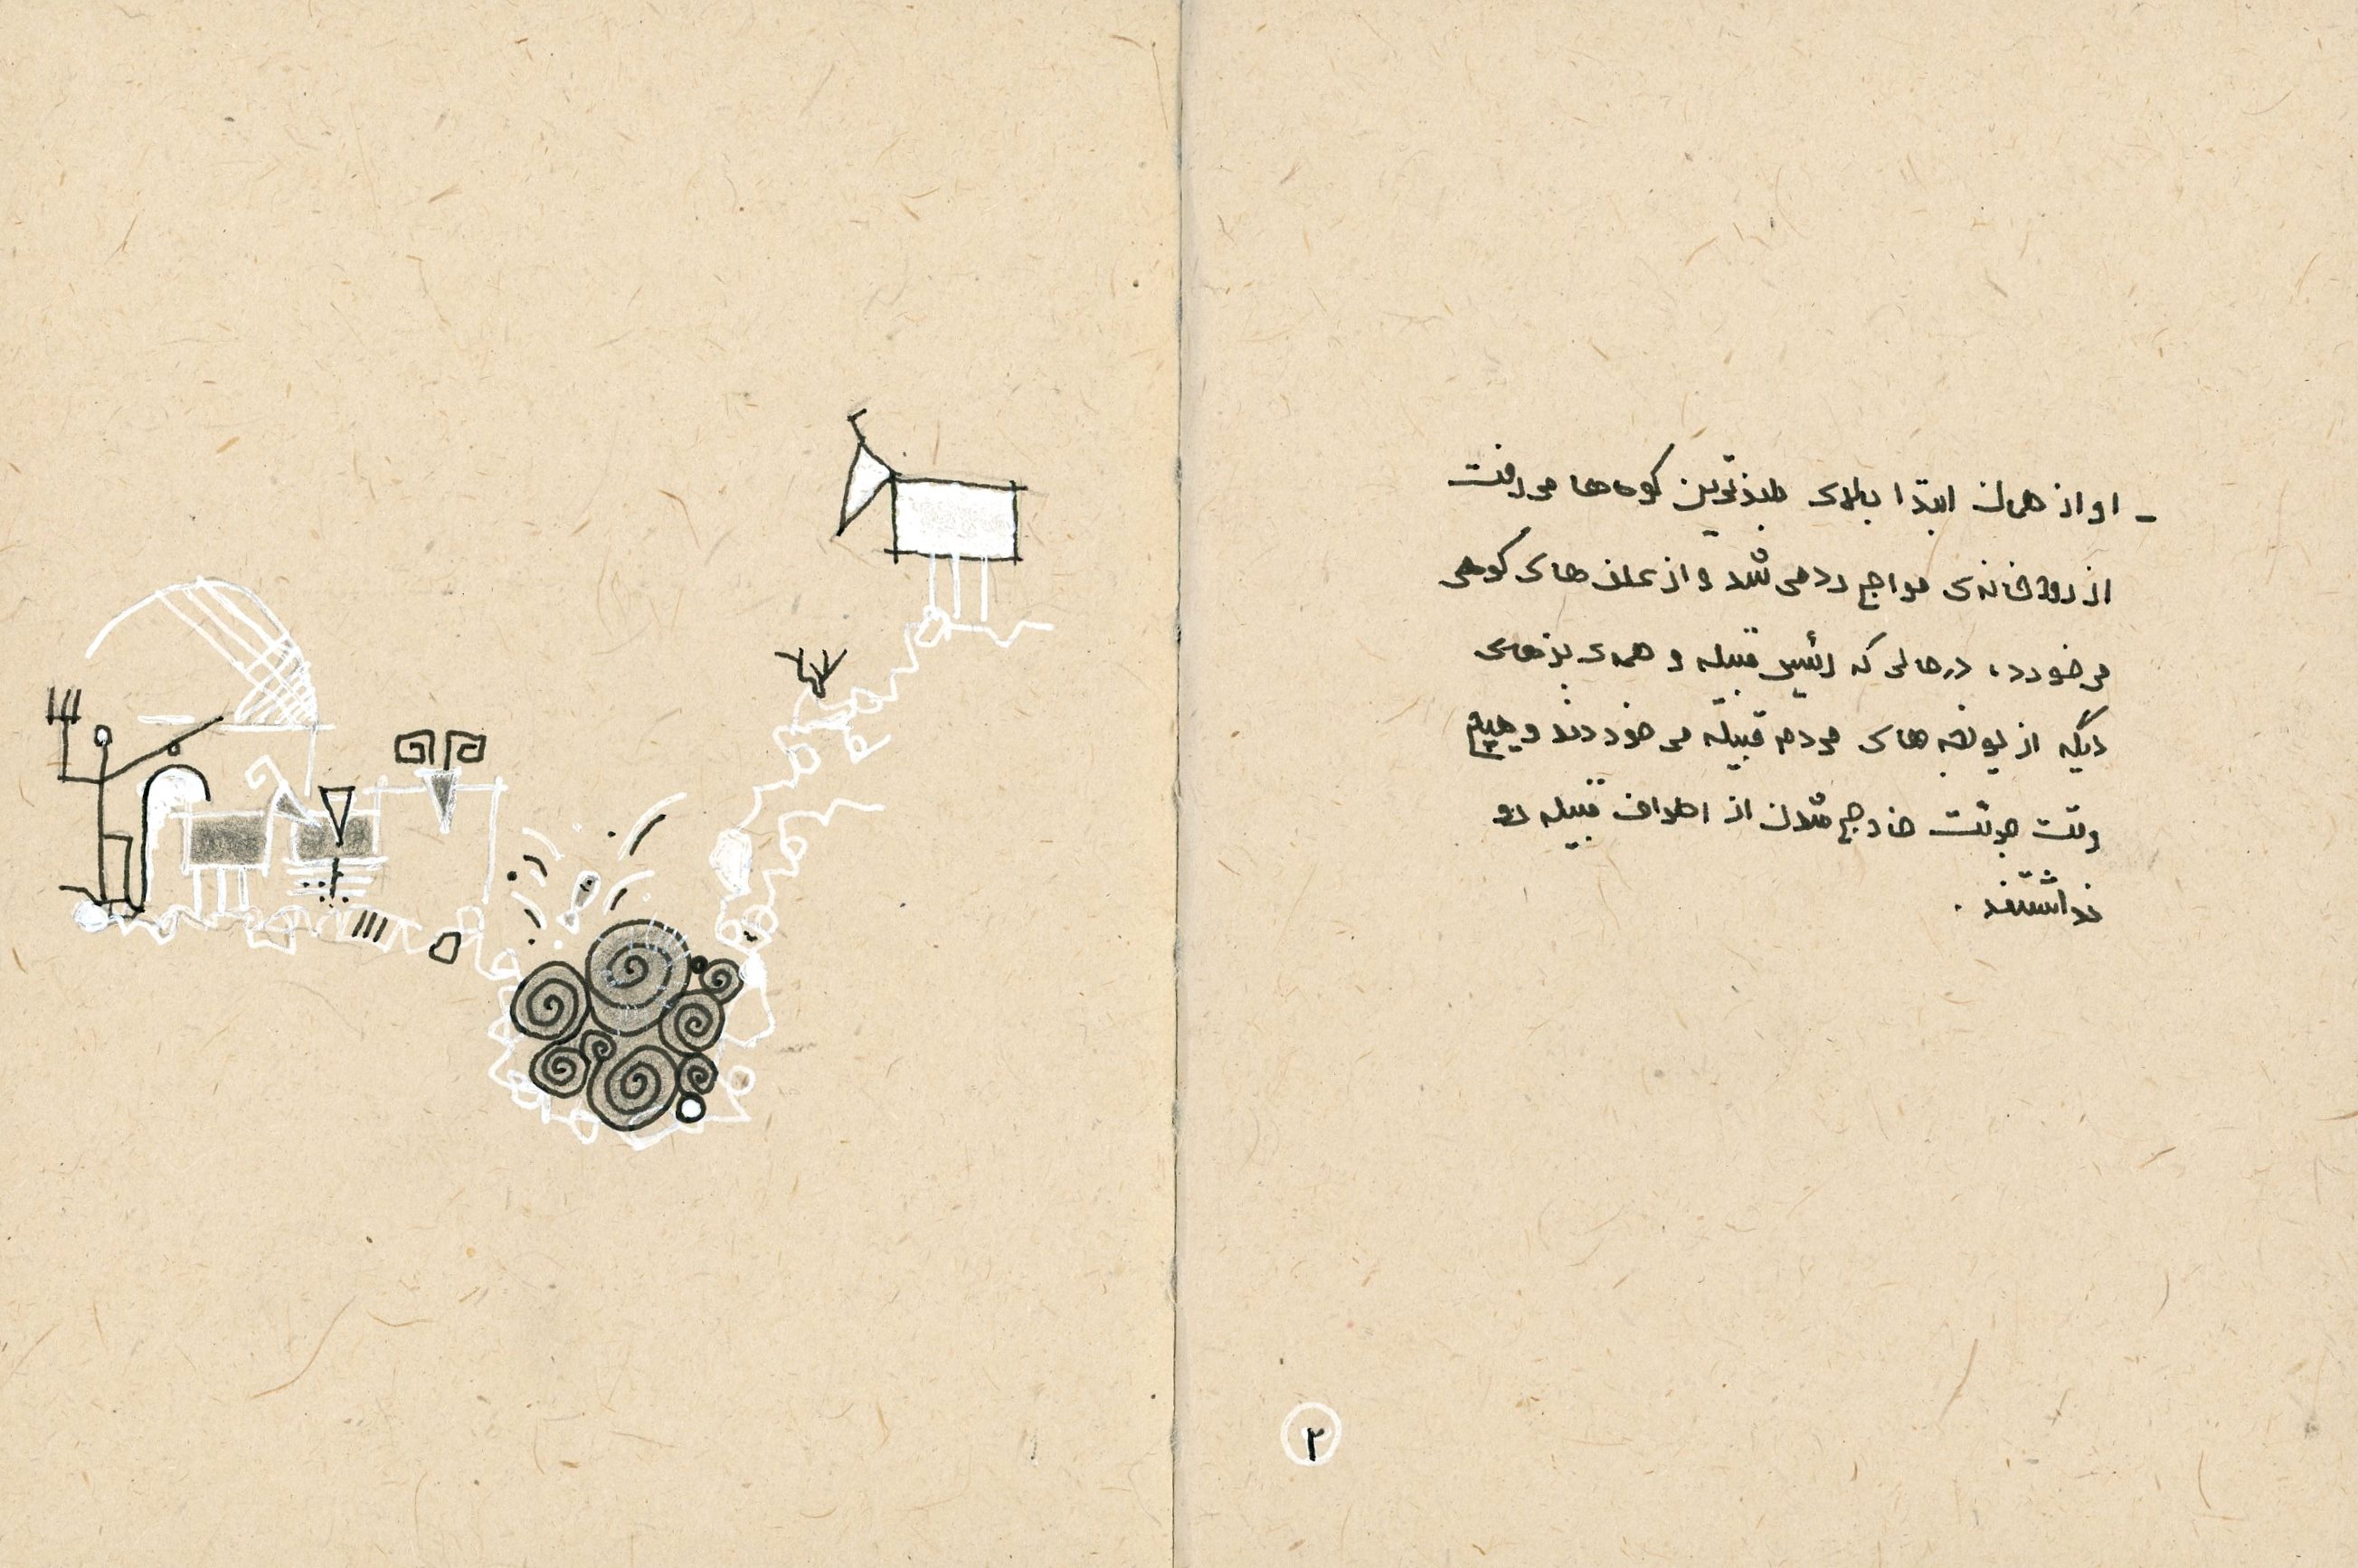 - او از همان ابتدا بالای بلندترین کوه‌ها می‌رفت
از رودخانه‌ی مواج رد می‌شد و از علف‌های کوهی
می‌خورد، در حالی که رئیس قبیله و همه‌ی بزهای
دیگه از یونجه‌های مردم قبیله می‌خوردند و هیچ
وقت جرئت خارج شدن از اطراف قبیله رو
نداشتند .
۲